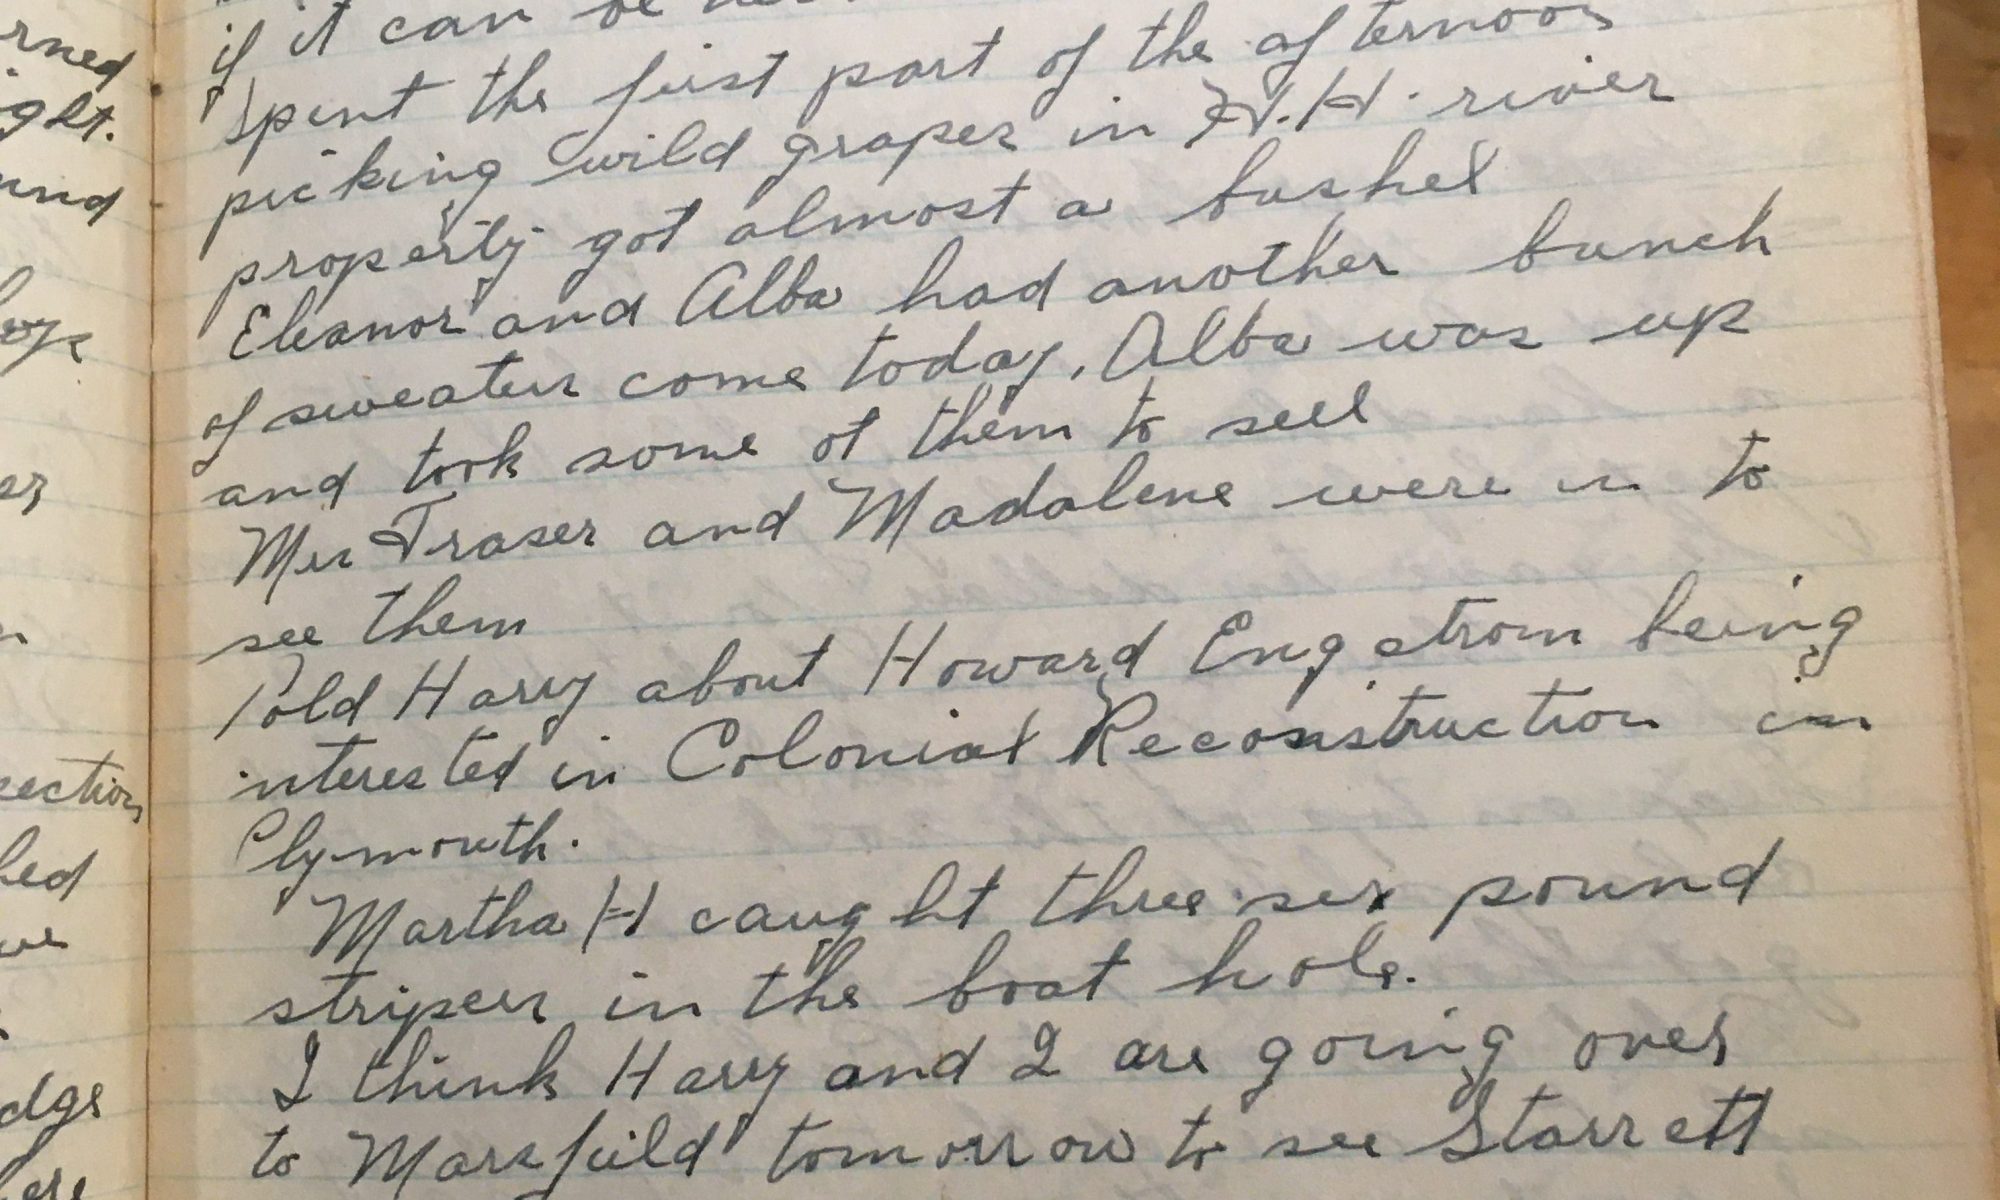 rned
ght.
und
section
hed
we
dge
if it can be
Spent the first part of the afternoon
picking wild grapes in H. H. river
property got almost a bushel
Eleanor and Alba had another bunch
of sweaters come today. Alba was up
and took some of them to sell
Mrs Fraser and Madalene were in to
see them
Told Harry about Howard Engstrom being
interested in Colonial Reconstruction in
Plymouth.
Martha H caught three six pound
stripers in the boat hole.
I think Harry and I are going over
to Marsfield tomorrow to see Starrett